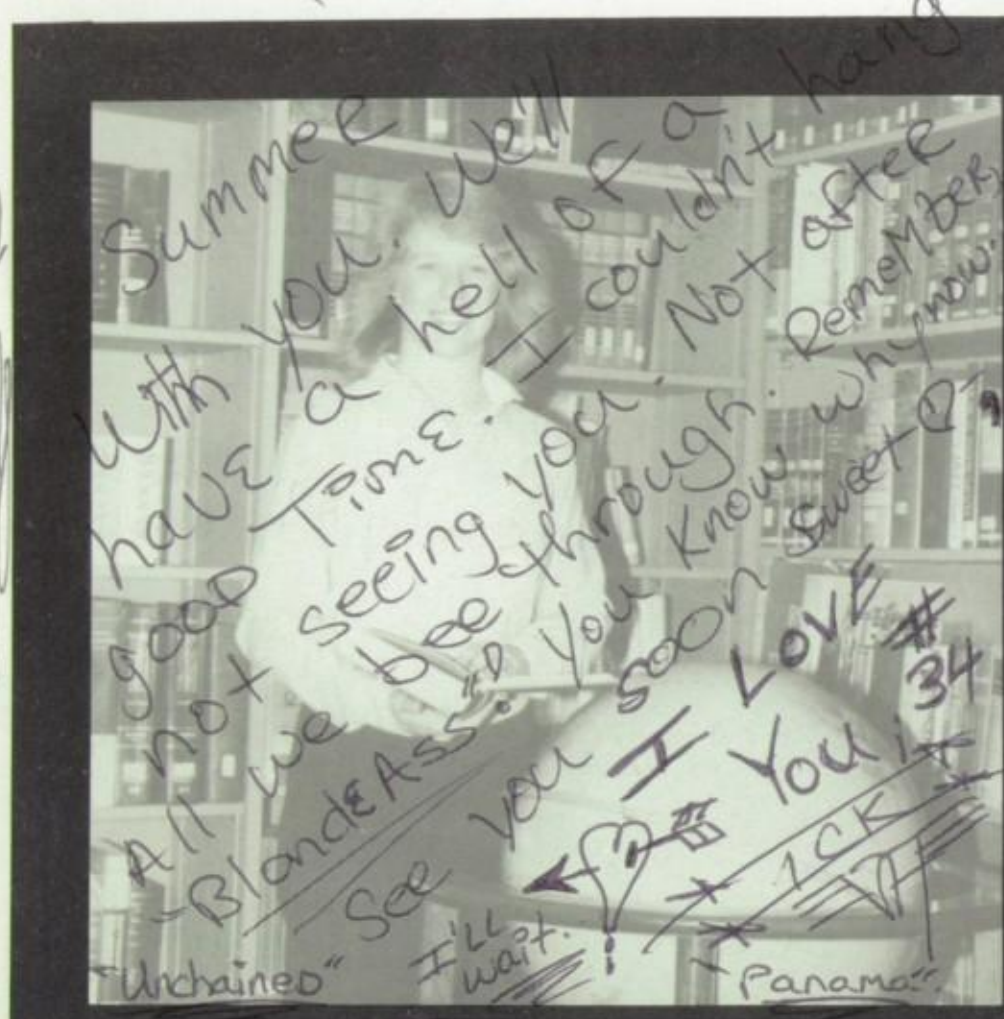 hang
Summer
With you. We'll
have a hell of a
good Time. I couldn't
not seeing you. Not after
All we bee through. Remember,
"BlondeAss" you know why now.
See you soon sweet
I LOVE
You
#
34
1CK
VH
I'LL
wait.
"Unchained"
"Panama".